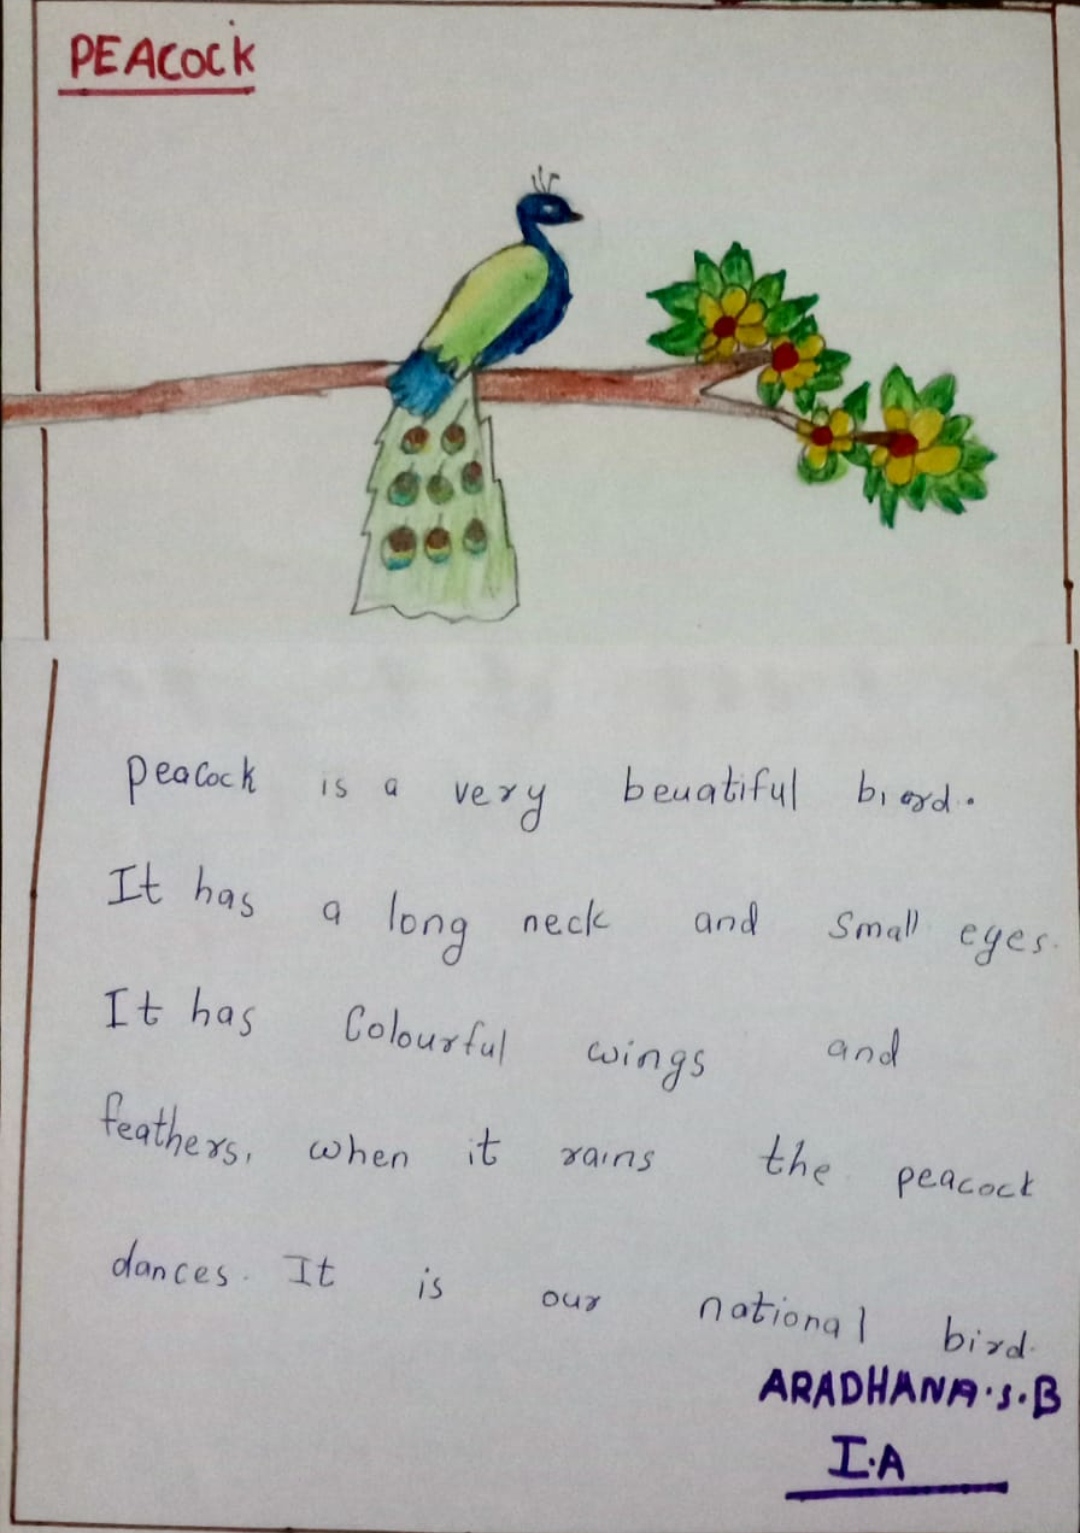 PEACOCK
Peacock is a very beuatiful biord.
It has a long neck and small eyes.
It has Colourful wings and
feathers, when it rains the peacock
dances. It is our national bird.
ARADHANA.S.B
I.A